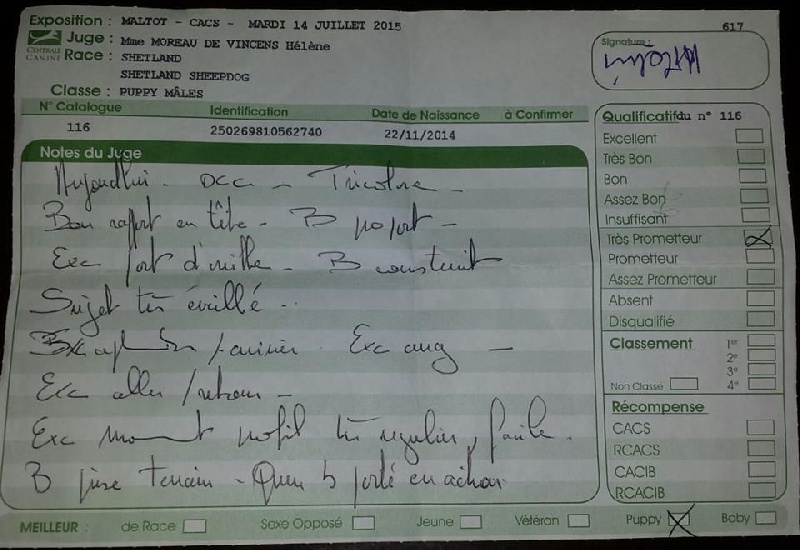 Exposition : MALTOT - CACS - MARDI 14 JUILLET 2015
617
Juge : Mme MOREAU DE VINCENS Hélène
Signature :
CENTRALE CANINE
Race : SHETLAND
SHETLAND SHEEPDOG
Classe : PUPPY MÂLES
N° Catalogue Identification Date de Naissance à Confirmer
116 250269810562740 22/11/2014
Notes du Juge
Aujourdhui - DCC - Tricolore -
Bon raport en tête - B
Exc port d'oreille - B construit
Sujet très éveillé -
Exc ang -
Exc aller / retour -
Exc profil très régulier, facile.
B prise terrain - Queue b porté en action
Qualificatif du n° 116
Excellent
Très Bon
Bon
Assez Bon
Insuffisant
Très Prometteur
Prometteur
Assez Prometteur
Absent
Disqualifié
Classement 1er
2e
3e
Non Classé 4e
Récompense
CACS
RCACS
CACIB
RCACIB
MEILLEUR : de Race Sexe Opposé Jeune Vétéran Puppy Baby